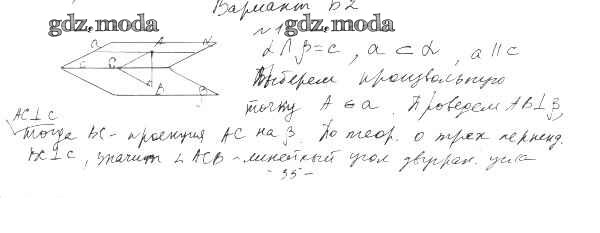 Вариант Б2
gdz.moda gdz.moda
№1
α ∩ β = c, a ⊂ α, a ∥ c
Выберем произвольную
точку A ∈ a. Проведем AB ⊥ β,
AC ⊥ c
тогда BC - проекция AC на β. По теор. о трех перпенд.
BC ⊥ c, значит ∠ ACB - линейный угол двугран. угла
- 35 -
a A α
c C
B β